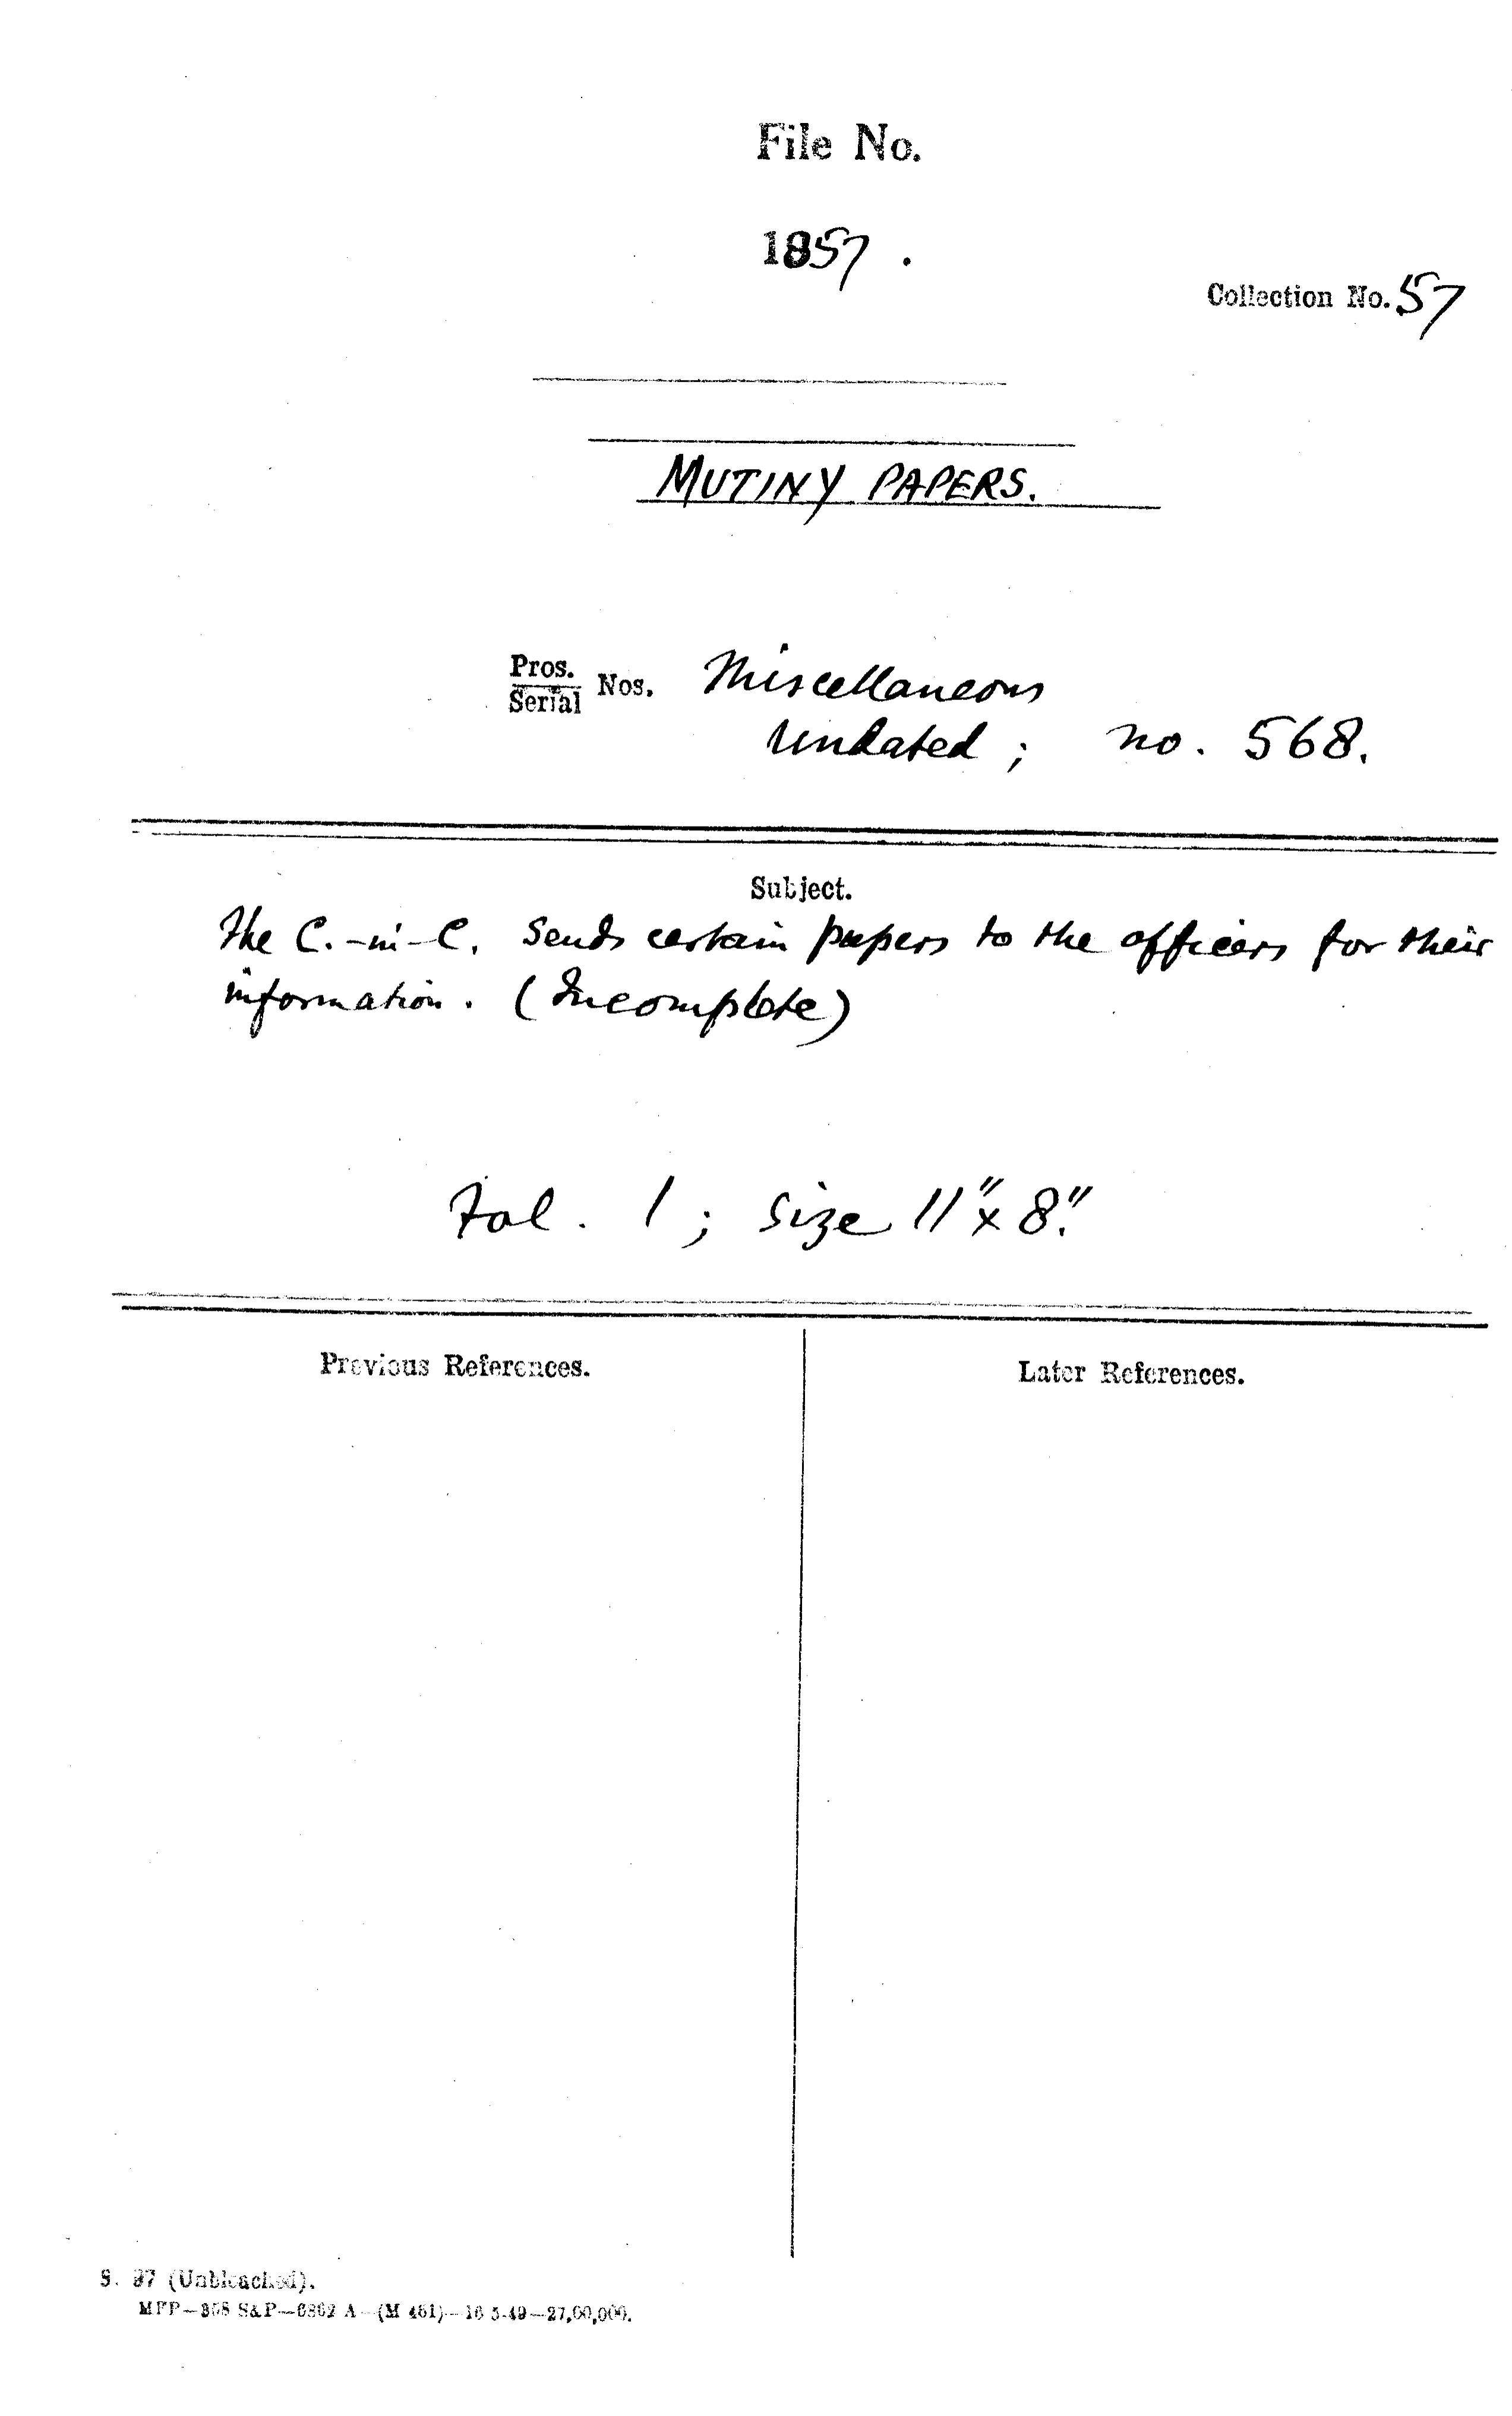 File No.
1857.
Collection No. 57
MUTINY PAPERS.
Pros.
Serial Nos. Miscellaneous
undated; no. 568.
Subject.
The C.-in-C. sends certain papers to the officers for their
information. (Incomplete)
Fol. 1; size 11"x 8".
Previous References.
Later References.
S. 97 (Unbleached).
S&P— A—(M 451)—16-5-49—27,00,000.